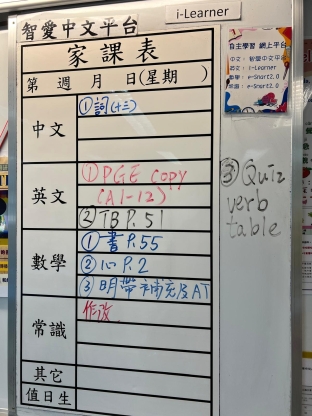 智愛中文平台
i-Learner
家課表
第 週 月 日(星期 )
中文
①詞(十三)
英文
①PGE copy
(A1-12)
②TB P.51
③Quiz
verb
table
數學
①書P.55
②心P.2
③明帶補充及AT
常識
作改
其它
值日生
自主學習 網上平台
中文：智愛中文平台
英文：i-Learner
數學：e-Smart2.0
常識：e-Smart2.0